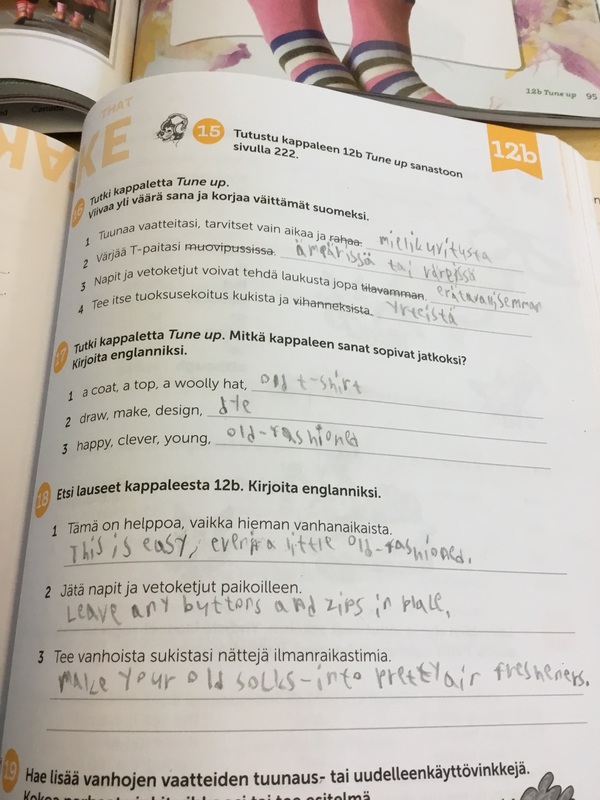 12b Tune up 95
Canada
THAT
KE
15 Tutustu kappaleen 12b Tune up sanastoon
sivulla 222.
12b
16 Tutki kappaletta Tune up.
Viivaa yli väärä sana ja korjaa väittämät suomeksi.
1 Tuunaa vaatteitasi, tarvitset vain aikaa ja rahaa. mielikuvitusta
2 Värjää T-paitasi muovipussissa. ämpärissä tai
3 Napit ja vetoketjut voivat tehdä laukusta jopa tilavamman.
4 Tee itse tuoksusekoitus kukista ja vihanneksista. yrteistä
17 Tutki kappaletta Tune up. Mitkä kappaleen sanat sopivat jatkoksi?
Kirjoita englanniksi.
1 a coat, a top, a woolly hat, old t-shirt
2 draw, make, design, dye
3 happy, clever, young, old-fashioned
18 Etsi lauseet kappaleesta 12b. Kirjoita englanniksi.
1 Tämä on helppoa, vaikka hieman vanhanaikaista.
This is easy, even if a little old-fashioned.
2 Jätä napit ja vetoketjut paikoilleen.
Leave any buttons and zips in place.
3 Tee vanhoista sukistasi nättejä ilmanraikastimia.
Make your old socks-into pretty air fresheners.
19 Hae lisää vanhojen vaatteiden tuunaus- tai uudelleenkäyttövinkkejä.